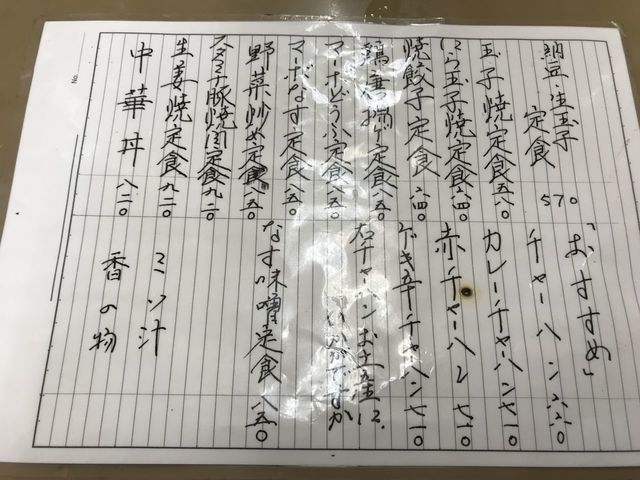 納豆・生玉子
定食 570
玉子焼定食 五八〇
にら玉子焼定食 六四〇
焼餃子定食 六四〇
鶏唐揚げ定食 八五〇
マーボどうふ定食 八五〇
マーボなす定食 八五〇
野菜炒め定食 八五〇
スタミナ豚焼肉定食 九二〇
生姜焼定食 九二〇
中華丼 八二〇
「おすすめ」
チャーハン 六六〇
カレーチャーハン 七一〇
赤チャーハン 七一〇
チャーハン 七一〇
右チャーハン お弁当に
いかがですか
なす味噌定食 八五〇
ミソ汁
香の物
No.